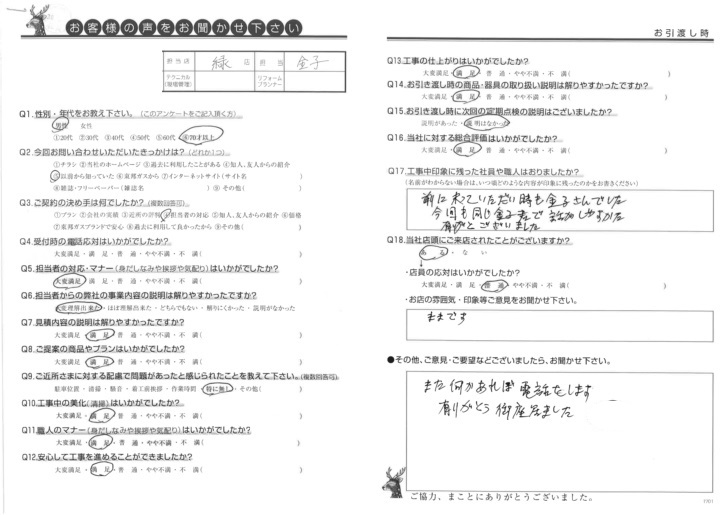 お客様の声をお聞かせ下さい
担当店 緑 店 担当 金子
テクニカル(現場管理) リフォームプランナー
Q1.性別・年代をお教え下さい。(このアンケートをご記入頂く方)
男性 女性
①20代 ②30代 ③40代 ④50代 ⑤60代 ⑥70才以上
Q2.今回お問い合わせいただいたきっかけは？(どれか1つ)
①チラシ ②当社のホームページ ③過去に利用したことがある ④知人、友人からの紹介
⑤以前から知っていた ⑥東邦ガスから ⑦インターネットサイト(サイト名 )
⑧雑誌・フリーペーパー(雑誌名 ) ⑨その他( )
Q3.ご契約の決め手は何でしたか？(複数回答可)
①プラン ②会社の実績 ③近所の評判 ④担当者の対応 ⑤知人、友人からの紹介 ⑥価格
⑦東邦ガスブランドで安心 ⑧過去に利用して良かったから ⑨その他( )
Q4.受付時の電話応対はいかがでしたか？
大変満足・満 足・普 通・やや不満・不 満( )
Q5.担当者の対応・マナー(身だしなみや挨拶や気配り)はいかがでしたか？
大変満足・満 足・普 通・やや不満・不 満( )
Q6.担当者からの弊社の事業内容の説明は解りやすかったですか？
大変理解出来た・ほぼ理解出来た・どちらでもない・解りにくかった・説明がなかった
Q7.見積内容の説明は解りやすかったですか？
大変満足・満 足・普 通・やや不満・不 満( )
Q8.ご提案の商品やプランはいかがでしたか？
大変満足・満 足・普 通・やや不満・不 満( )
Q9.ご近所さまに対する配慮で問題があったと感じられたことを教えて下さい。(複数回答可)
駐車位置・清掃・騒音・着工前挨拶・作業時間・特に無し・その他( )
Q10.工事中の美化(清掃)はいかがでしたか？
大変満足・満 足・普 通・やや不満・不 満( )
Q11.職人のマナー(身だしなみや挨拶や気配り)はいかがでしたか？
大変満足・満 足・普 通・やや不満・不 満( )
Q12.安心して工事を進めることができましたか？
大変満足・満 足・普 通・やや不満・不 満( )
お引渡し時
Q13.工事の仕上がりはいかがでしたか？
大変満足・満 足・普 通・やや不満・不 満( )
Q14.お引き渡し時の商品・器具の取り扱い説明は解りやすかったですか？
大変満足・満 足・普 通・やや不満・不 満( )
Q15.お引き渡し時に次回の定期点検の説明はございましたか？
説明があった・説明はなかった
Q16.当社に対する総合評価はいかがでしたか？
大変満足・満 足・普 通・やや不満・不 満( )
Q17.工事中印象に残った社員や職人はおりましたか？
(名前がわからない場合は、いつ頃どのような内容が印象に残ったのかをお書きください)
前に来ていただい時も金子さんでした
今回も同じ金子
有がとうございました
Q18.当社店頭にご来店されたことがございますか？
あ る・な い
・店員の応対はいかがでしたか？
大変満足・満 足・普 通・やや不満・不 満( )
・お店の雰囲気・印象等ご意見をお聞かせ下さい。
ままです
●その他、ご意見・ご要望などございましたら、お聞かせ下さい。
また何かあれば電話をします
有りがとう御座居ました
ご協力、まことにありがとうございました。